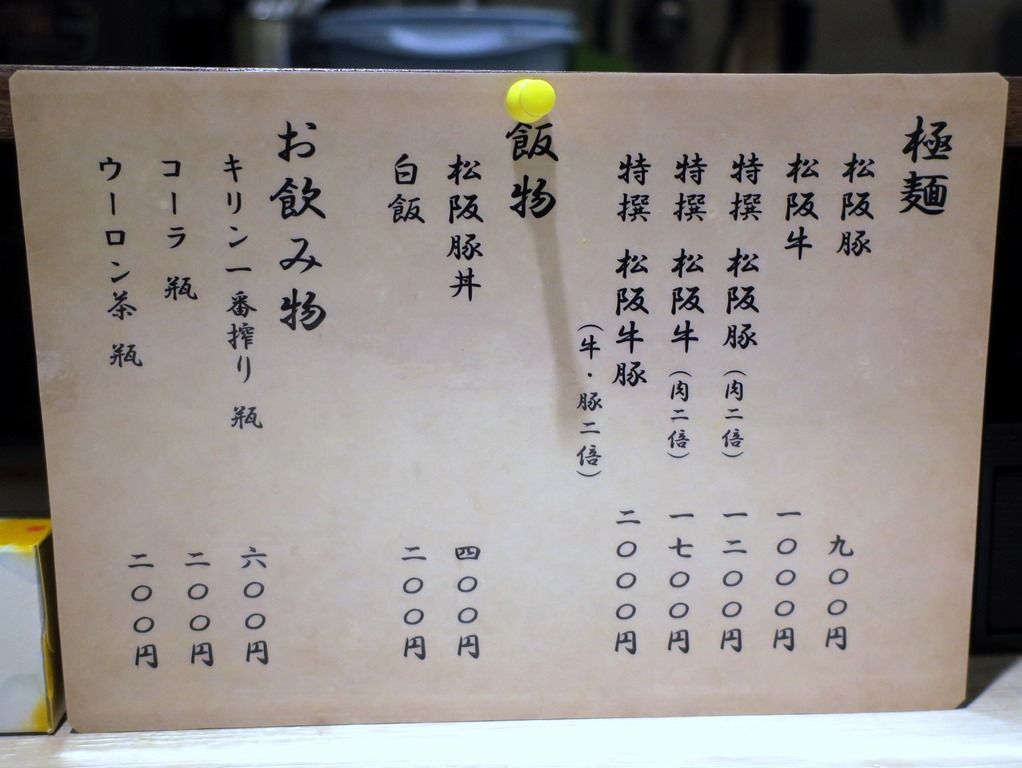 極麺
松阪豚 九〇〇円
松阪牛 一〇〇〇円
特撰 松阪豚（肉二倍） 一二〇〇円
特撰 松阪牛（肉二倍） 一七〇〇円
特撰 松阪牛豚 二〇〇〇円
（牛・豚二倍）
飯物
松阪豚丼 四〇〇円
白飯 二〇〇円
お飲み物
キリン一番搾り 瓶 六〇〇円
コーラ 瓶 二〇〇円
ウーロン茶 瓶 二〇〇円